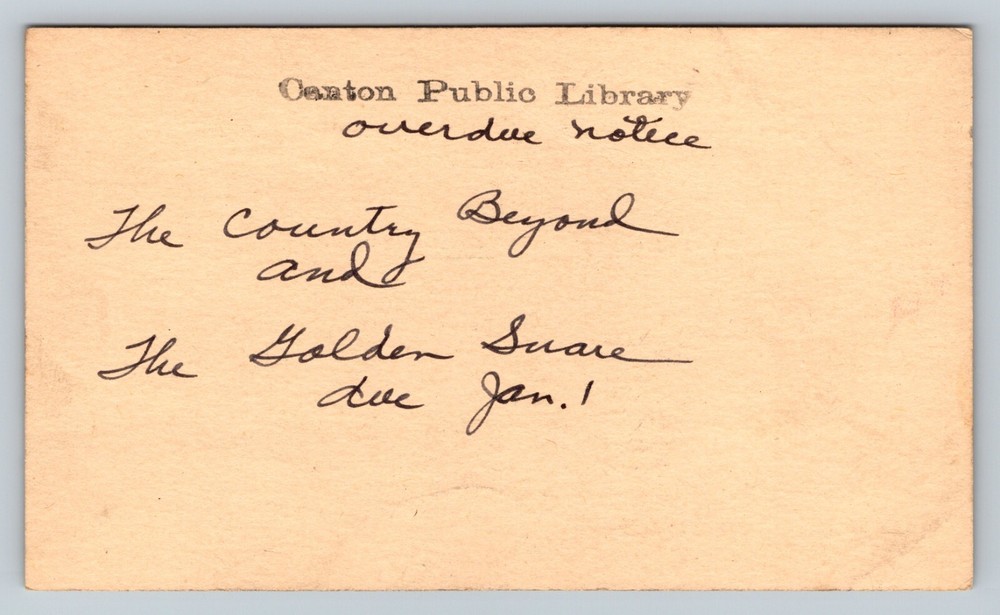 Canton Public Library
overdue notice
The Country Beyond
and
The Golden Snare
due Jan. 1